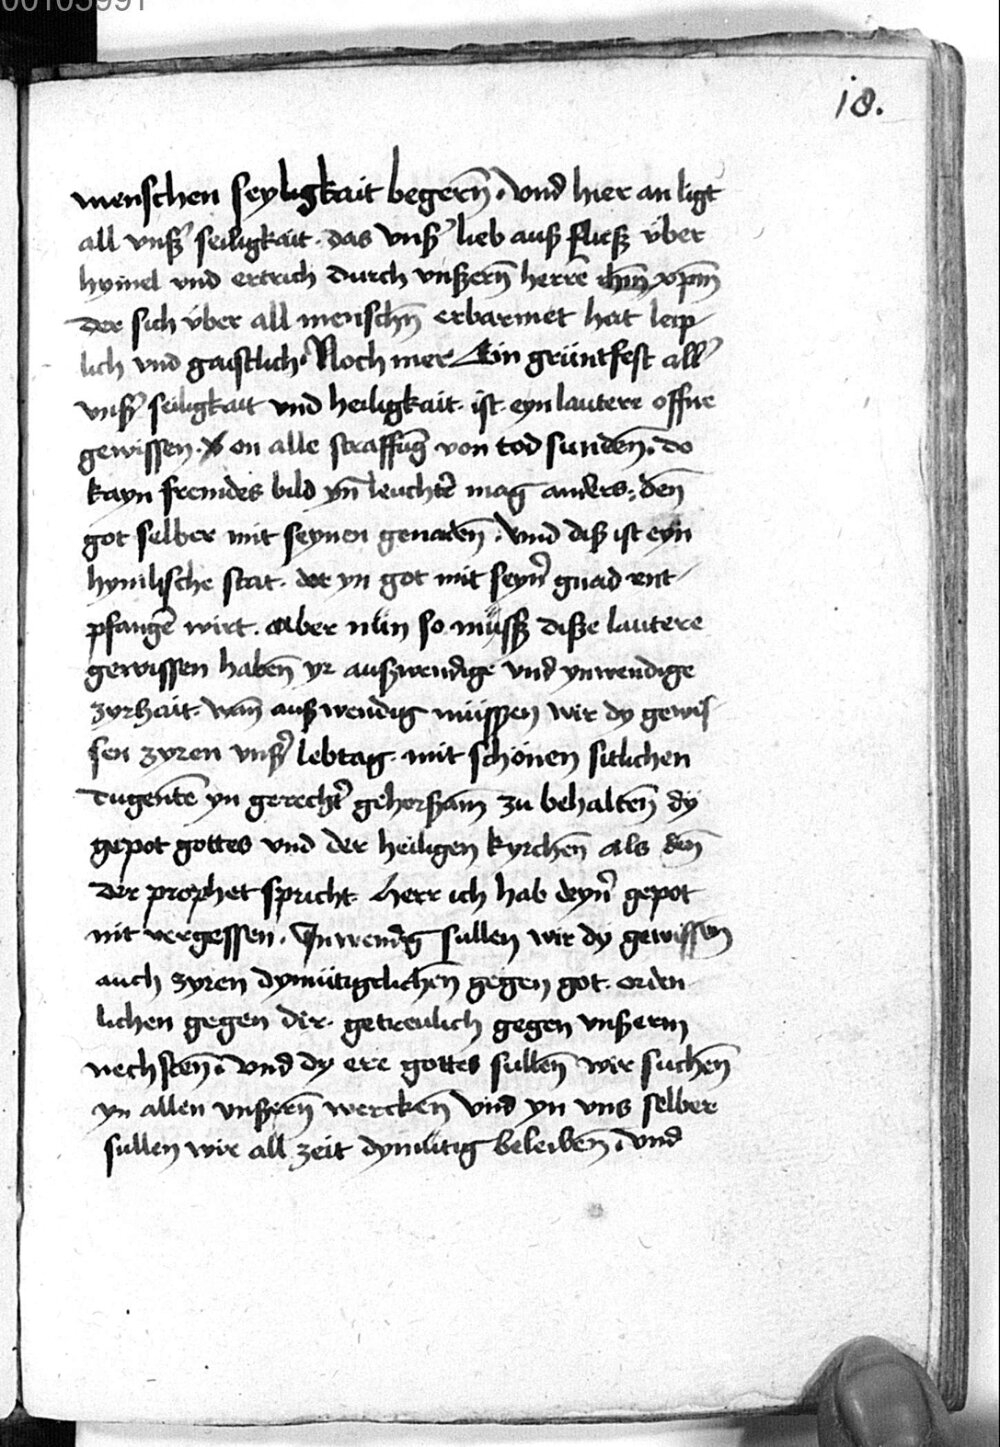 00105991
18.
menschen seyligkait begern̄. Vnd hier an ligt
all vnßer̉ seiligkait. das vnßer̉ lieb auß fließ über
hymel vnd ertrich durch vnßern̄ herrē ihm̄ xpm̄
Der sich über all menschn̄ erbarmet hat leip
lich vnd gaistlich. Noch mer Ein grüntfest all̉
vnßer̉ seiligkait vnd heiligkait. ist. eyn lautere offne
gewissen. on alle straffūg von tod sunden̄. do
kayn fremdes bild yn̄ leuchtē mag anders. den̄
got selber mit seynen genaden̄. Vnd diß ist eyn
hymlische stat. dar yn got mit seyn̉ gnad ent
pfangē wirt. Aber nün so müsß diße lautere
gewissen haben̄ yr außwendige vnd ynwendige
zyrhait. wan̄ außwendig müssen wir dy gewis
sen zyren vnßer̉ lebtag. mit schönen sitlichen
tugentē yn gerecht̉ gehorßam̄ zu behalten̄ dy
gepot gottes vnd der heiligen kyrchen̄ als den̄
der prophet spricht. Herr ich hab deyn̉ gepot
nit vergessen. Inwendig sullen wir dy gewissen
auch zyren dymütigclichen̄ gegen got. orden
lichen gegen dir. getreulich gegen vnßerm
nechsten̄. Vnd dy ere gottes sullen̄ wir suchen̄
yn allen vnßern̄ wercken̄ Vnd yn vns selber
sullen wir all zeit dymütig beleiben̄. Vnd